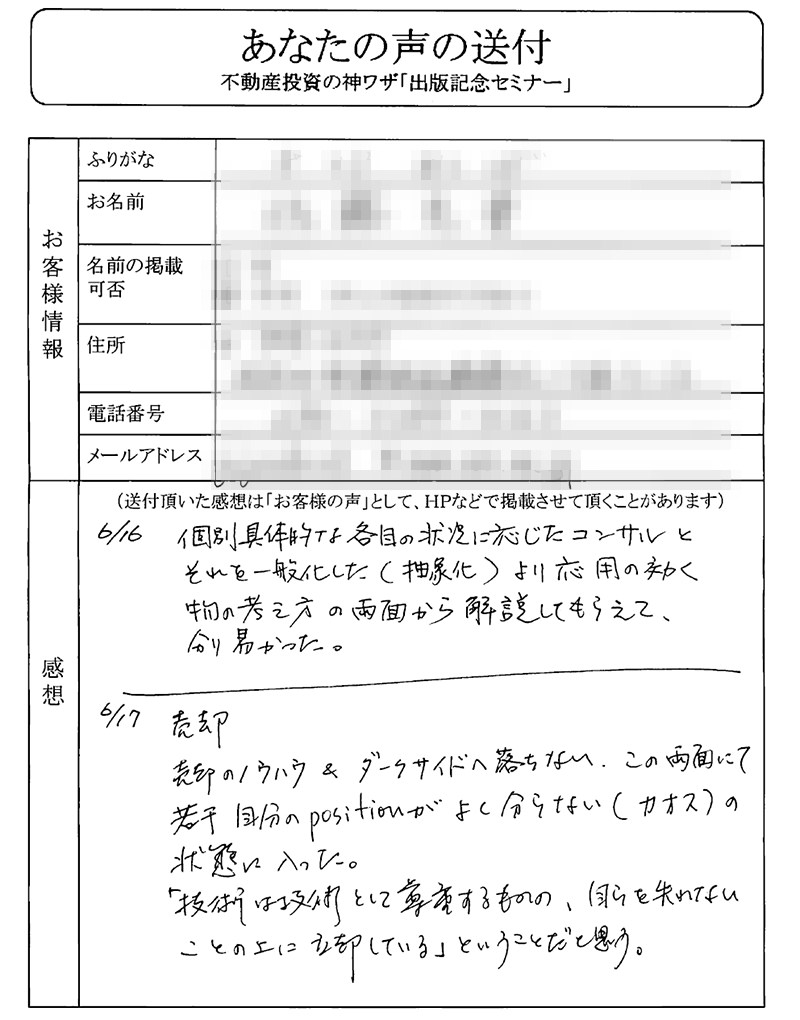 あなたの声の送付
不動産投資の神ワザ「出版記念セミナー」
お客様情報
ふりがな
お名前
名前の掲載
可否
住所
電話番号
メールアドレス
感想
(送付頂いた感想は「お客様の声」として、HPなどで掲載させて頂くことがあります)
6/16 個別具体的な各自の状況に応じたコンサルと
それを一般化した(抽象化)より応用の効く
物の考え方の両面から解説してもらえて、
分り易かった。
6/17 売却
売却のノウハウ & ダークサイドへ落ちない. この両面にて
若干 自分のpositionがよく分らない(カオス)の
状態に入った。
「技術は技術として尊重するものの、自らを失れない
ことの上に立却している」ということだと思う。